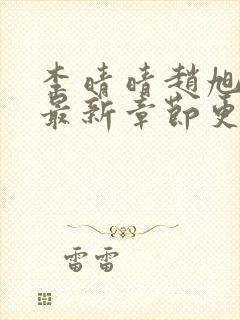 李晴晴趙旭
最新章節更
雷雷